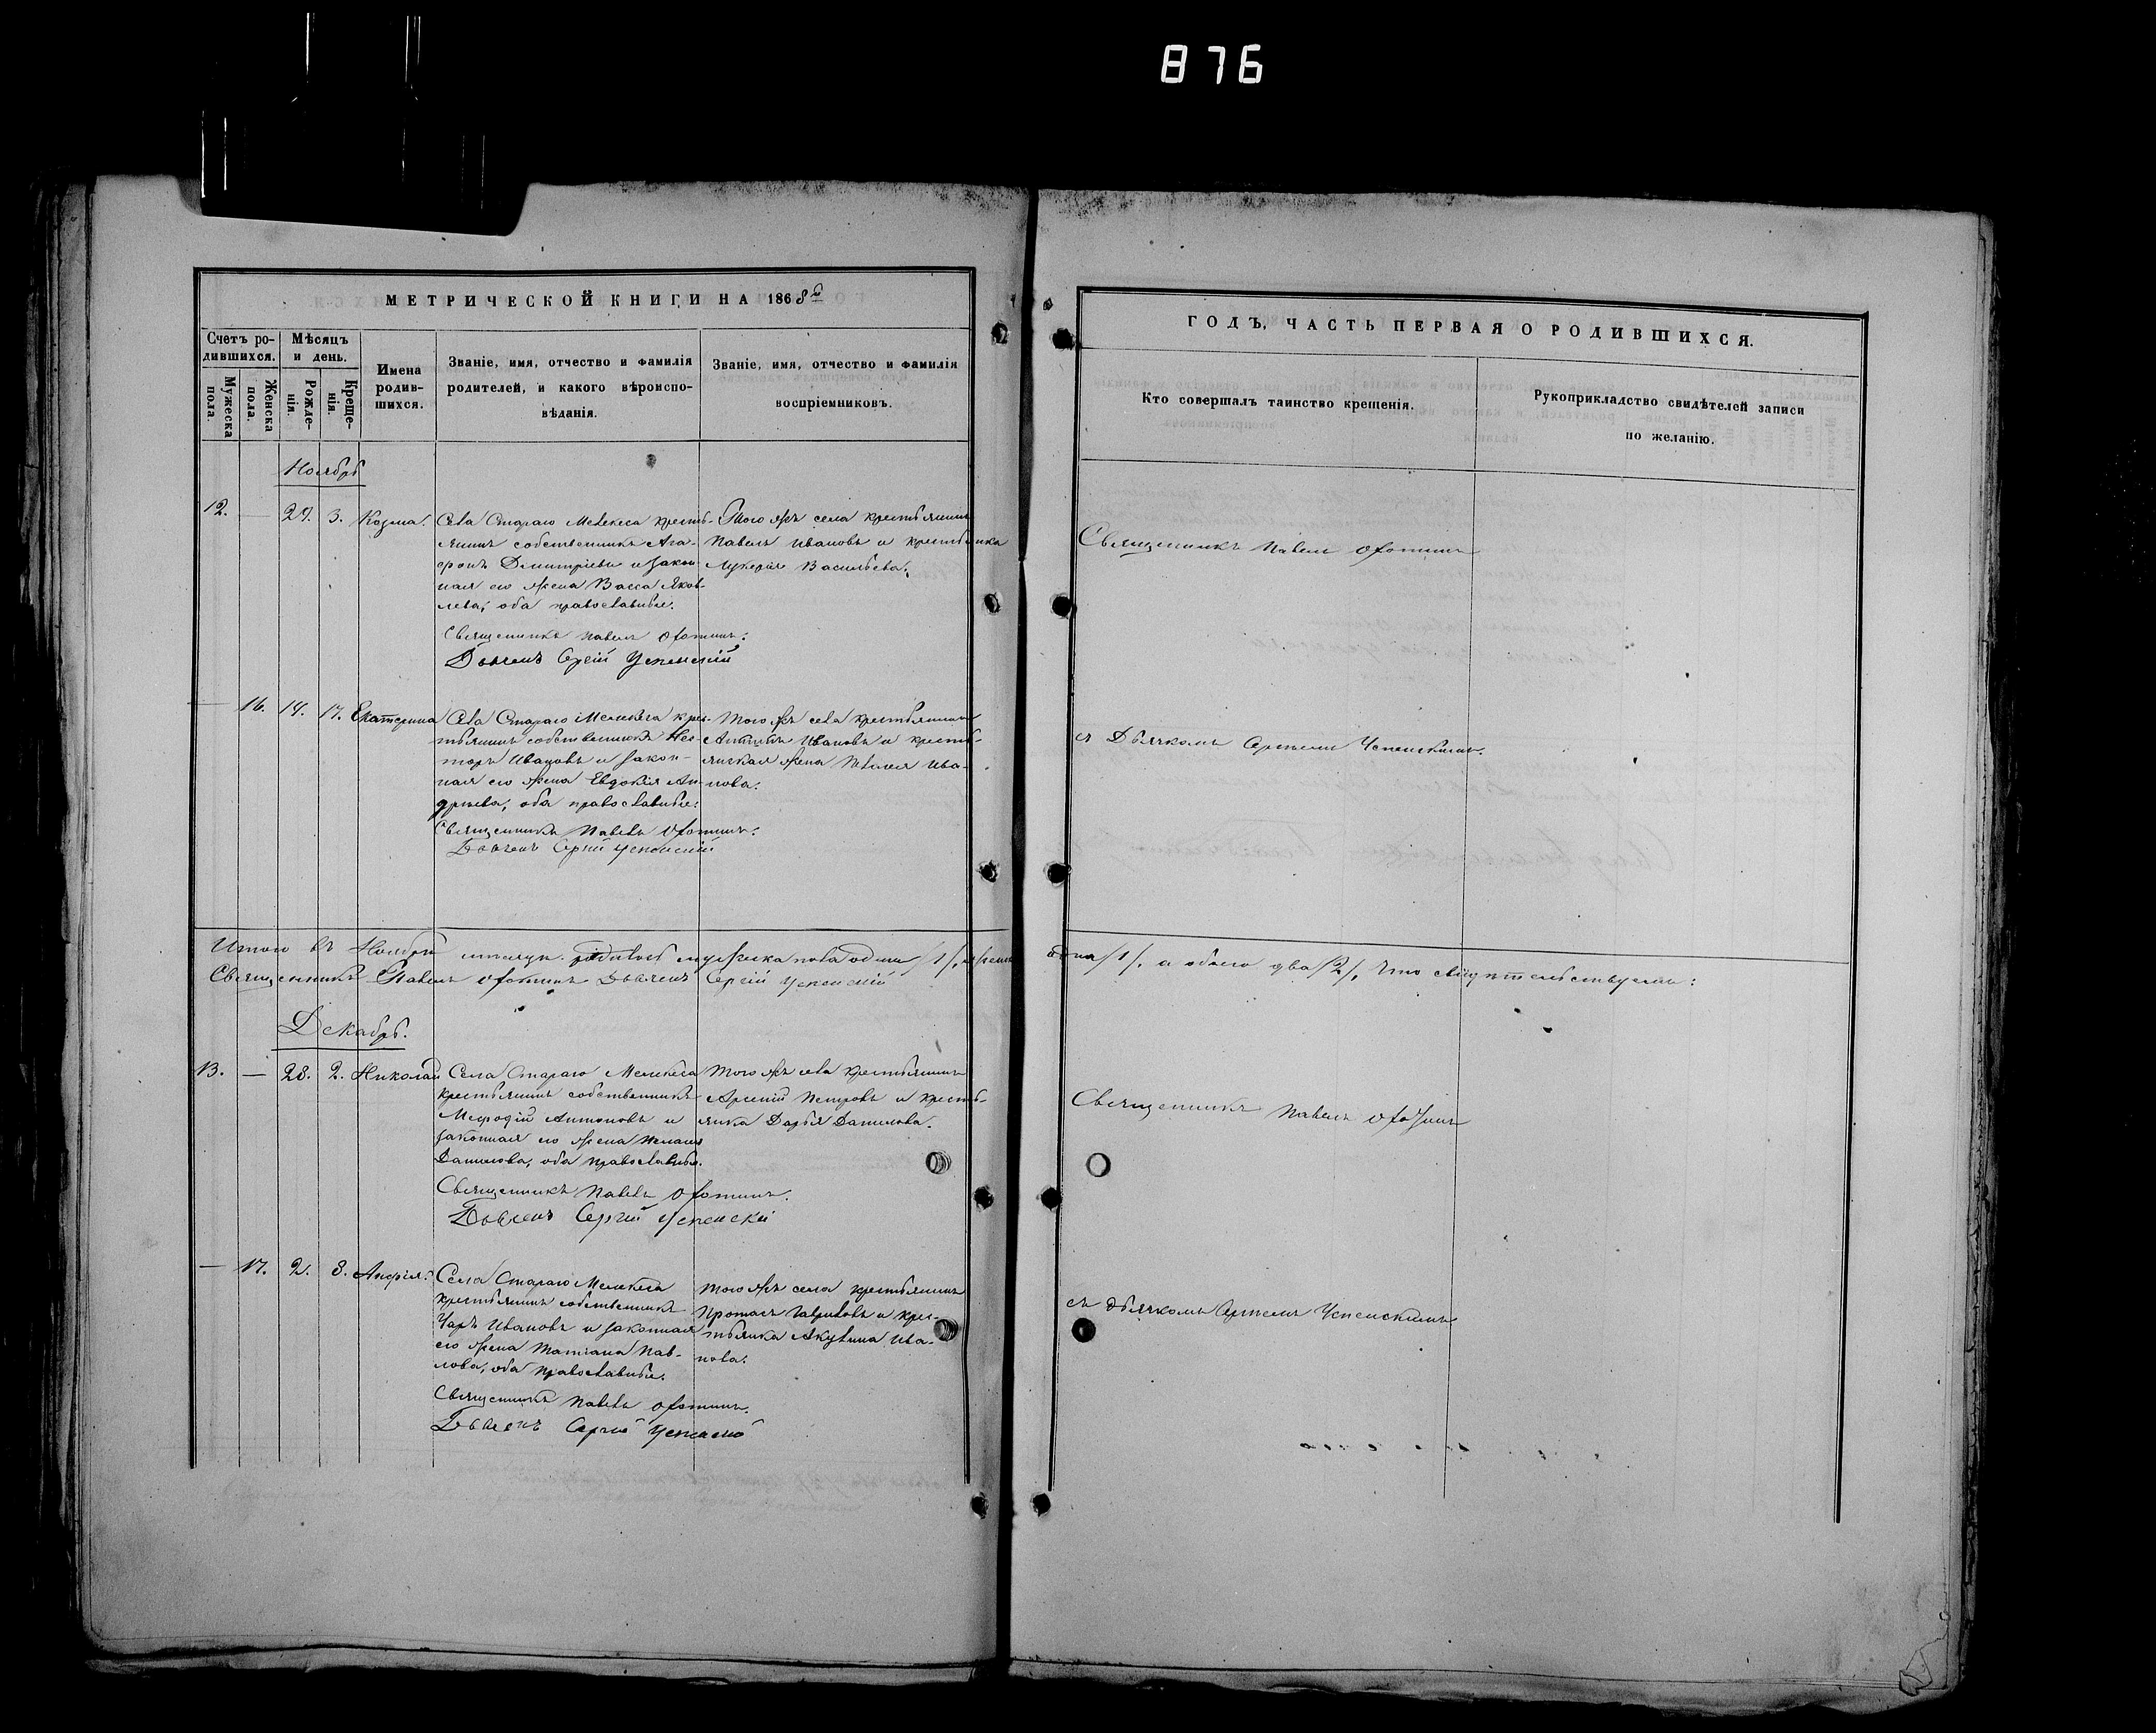 876
МЕТРИЧЕСКОЙ КНИГИ НА 1868й
Счетъ родившихся.
Мужеска пола.
Женска пола.
Мѣсяцъ и день.
Рожденія.
Крещенія.
Имена родившихся.
Званіе, имя, отчество и фамилія
родителей, и какого вѣроиспо-
вѣданія.
Званіе, имя, отчество и фамилія
воспріемниковъ.
Ноябрь
12. — 29. 3. Козма.
Села Стараго Мелекеса кресть-
янинъ собственникъ Ага-
фонъ Димитріевъ и закон
ная его жена Васса Яков-
лева, оба православные.
Священникъ Павелъ
Дьячекъ Сергій Успенскій
Того же села крестьянинъ
Павелъ Ивановъ и крестьянка
Лукерія Васильева.
— 16. 14. 17. Екатерина
Села Стараго Мелекеса крес-
тьянинъ собственникъ Нес-
торъ Ивановъ и закон-
ная его жена Евдокія Ан-
дреева, оба православные.
Священникъ Павелъ
Дьячекъ Сергій Успенскій
Того же села крестьянинъ
Ивановъ и кресть-
янская жена Ива-
нова.
Итого въ Ноябрѣ мужеска пола одинъ /1/,
Священникъ Павелъ Дьячекъ Сергій Успенскій
Декабрь.
13. — 28. 2. Николай
Села Стараго Мелекеса
крестьянинъ собственникъ
Мефодій Антоновъ и
законная его жена
Данилова, оба православные.
Священникъ Павелъ
Дьячекъ Сергій Успенскій
Того же села крестьянинъ
Арсеній Петровъ и кресть-
янка Дарья Данилова.
— 17. 2. 8. Анфія.
Села Стараго Мелекеса
крестьянинъ собственникъ
Ивановъ и законная
его жена Татіана Пав-
лова, оба православные.
Священникъ Павелъ
Дьячекъ Сергій Успенскій
Того же села крестьянинъ
Гавриловъ и крес-
тьянка Акулина Ива-
нова.
ГОДЪ, ЧАСТЬ ПЕРВАЯ О РОДИВШИХСЯ.
Кто совершалъ таинство крещенія.
Рукоприкладство свидѣтелей записи
по желанію.
Священникъ Павелъ
съ Дьячкомъ Сергіемъ Успенскимъ.
одна /1/, а обоего два /2/, что свидѣтельствуемъ:
Священникъ Павелъ
съ дьячкомъ Сергіемъ Успенскимъ